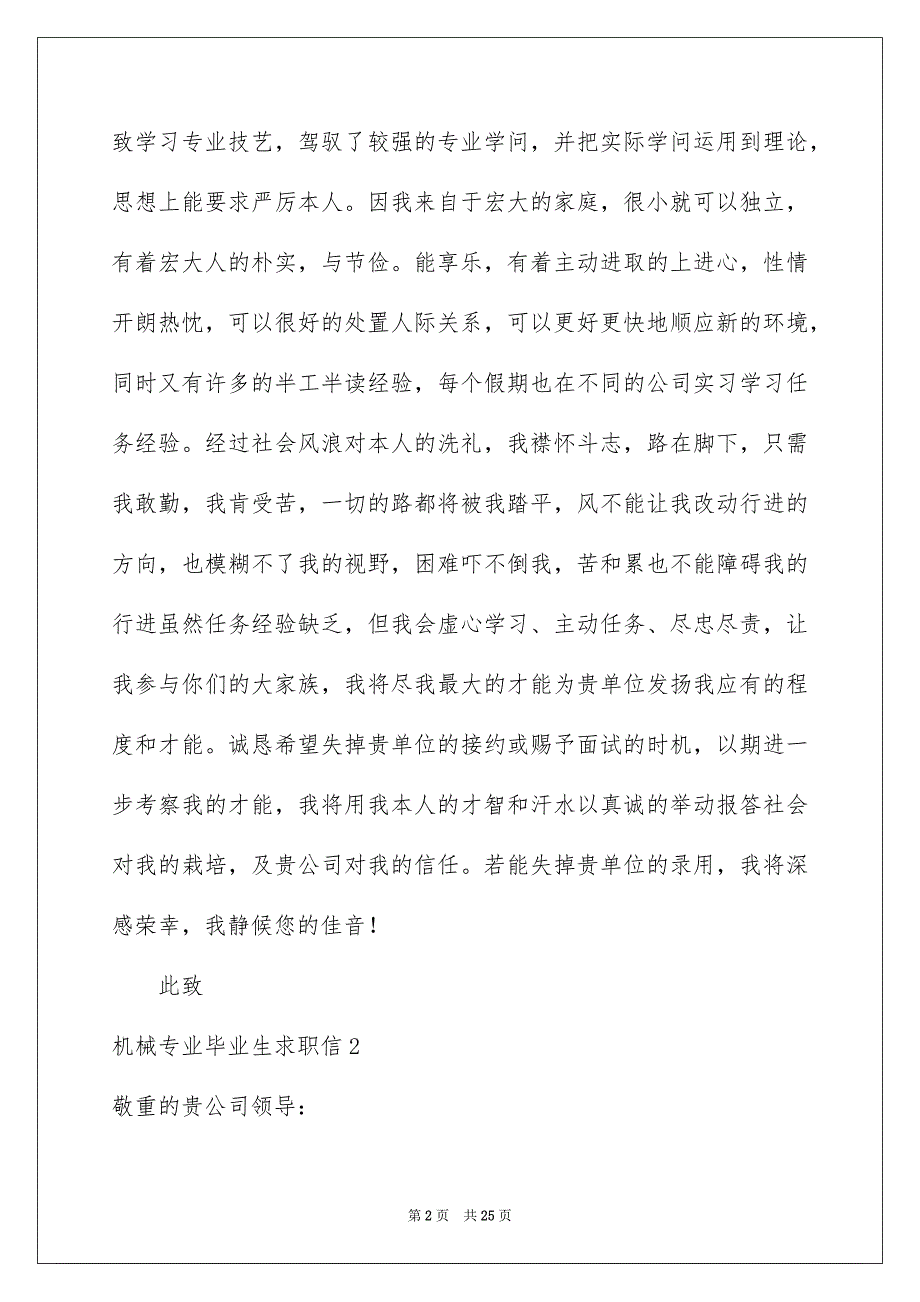 致学习专业技艺，驾驭了较强的专业学问，并把实际学问运用到理论，
思想上能要求严厉本人。因我来自于宏大的家庭，很小就可以独立，
有着宏大人的朴实，与节俭。能享乐，有着主动进取的上进心，性情
开朗热忱，可以很好的处置人际关系，可以更好更快地顺应新的环境，
同时又有许多的半工半读经验，每个假期也在不同的公司实习学习任
务经验。经过社会风浪对本人的洗礼，我襟怀斗志，路在脚下，只需
我敢勤，我肯受苦，一切的路都将被我踏平，风不能让我改动行进的
方向，也模糊不了我的视野，困难吓不倒我，苦和累也不能障碍我的
行进虽然任务经验缺乏，但我会虚心学习、主动任务、尽忠尽责，让
我参与你们的大家族，我将尽我最大的才能为贵单位发扬我应有的程
度和才能。诚恳希望失掉贵单位的接约或赐予面试的时机，以期进一
步考察我的才能，我将用我本人的才智和汗水以真诚的举动报答社会
对我的栽培，及贵公司对我的信任。若能失掉贵单位的录用，我将深
感荣幸，我静候您的佳音！
此致
机械专业毕业生求职信 2
敬重的贵公司领导：
第 2 页 共 25 页